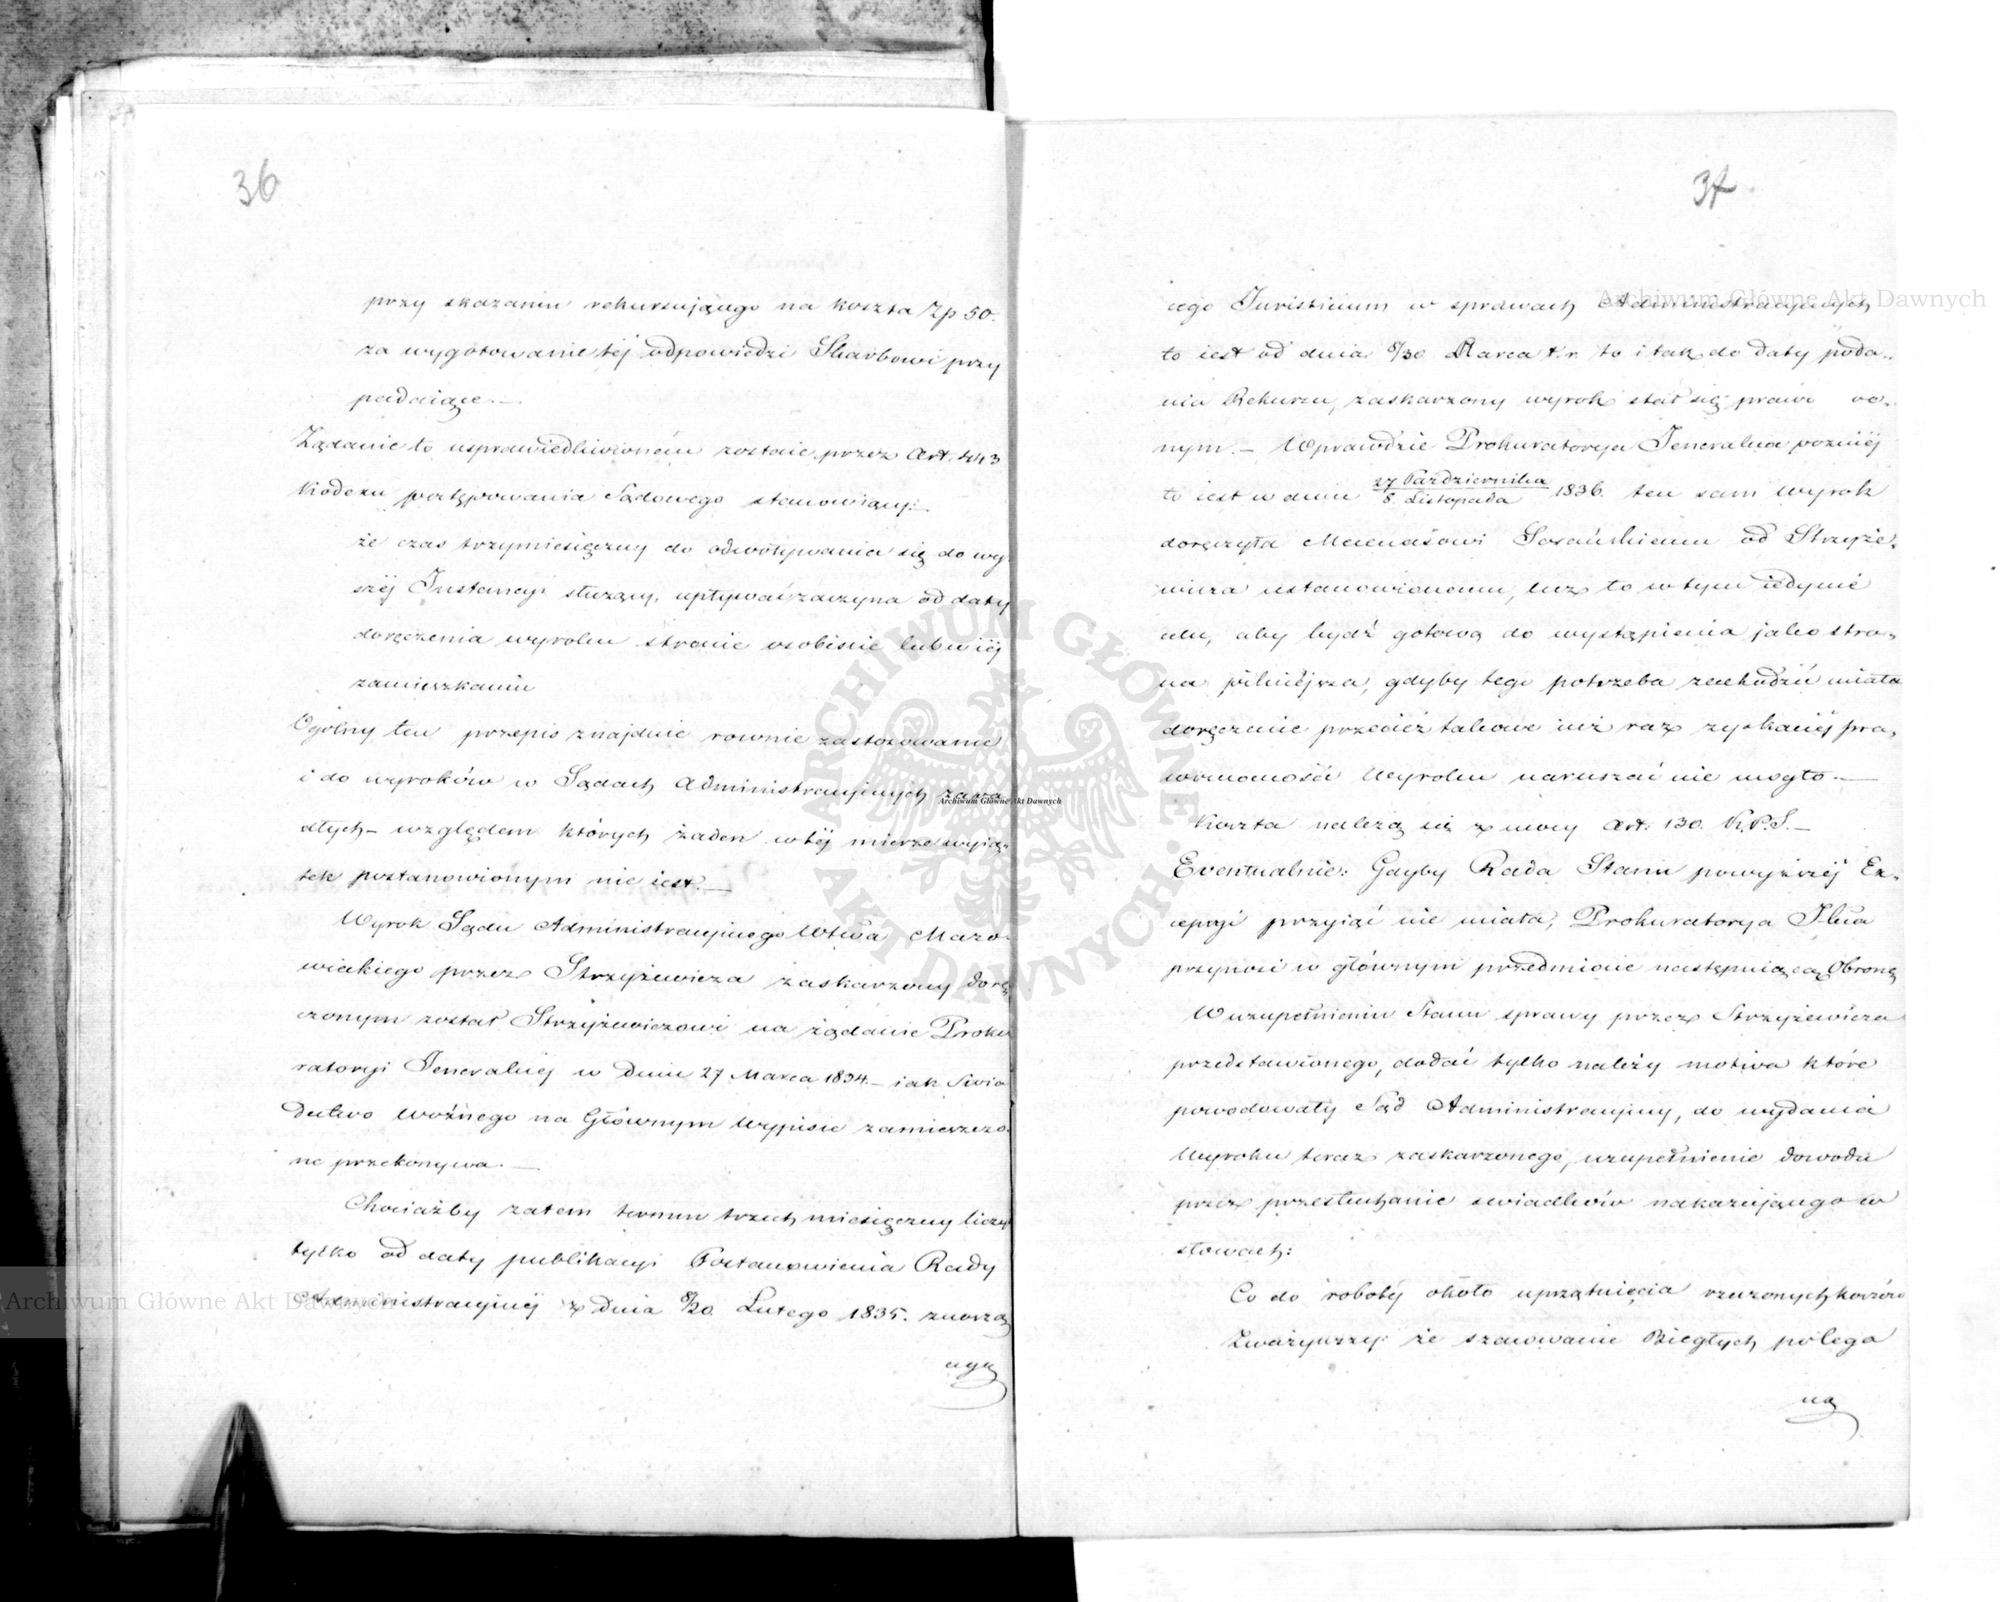 36
przy skazaniu rekursującego na koszta Zp 50.
za wygotowanie tej odpowiedzi Skarbowi przy
padaiące. —
Żądanie to usprawiedliwionem zostaie przez Art. 443
Kodexu postępowania Sądowego stanowiący:
że czas trzymiesięczny do odwoływania się do wyż
széj Instancyi służący, upływać zaczyna od daty
doręczenia wyroku stronie osobiście lub w iéj
zamieszkaniu
Ogólny ten przepis znajduie rownie zastosowanie
i do wyroków w Sądach Administracyjnych zapa
dłych – względem których żaden w téj mierze wyią„
tek postanowionym nie iest. —
Wyrok Sądu Administracyjnego Wtwa Mazo„
wieckiego przez Strzyżewicza zaskarzony dorę
czonym został Strzyżewiczowi na żądanie Proku
ratoryi Jeneralnéj w dniu 27 Marca 1834. – iak świa
dectwo Woźnego na Głównym Wypisie zamieszczo„
ne przekonywa. —
Chociażby zatem termin trzech miesięczny liczyć
tylko od daty publikacyi Postanowienia Rady
Administracyjnéj z dnia 8/20 Lutego 1835. znoszą
cego
37
cego Juristicium w sprawach Administracyjnych
to iest od dnia 8/20 Marca t. r. to i tak do daty poda„
nia Rekursu, zaskarzony wyrok stał się prawo mo„
nym. – Wprawdzie Prokuratorya Jeneralna poźniéj
to iest w dniu 27 Października / 8. Listopada 1836. ten sam wyrok
doręczyła Mecenasowi od Strzyże„
wicza ustanowionemu, lecz to w tym iedynie
celu, aby bydź gotową do wystąpienia jako stro„
na pilniéjsza, gdyby tego potrzeba zachodzić miała
doręczenie przecież takowe iuż raz zyskanéj pra„
womocności Wyroku naruszać nie mogło. —
Koszta należą się z mocy Art: 130. K.P.S. —
Eventualnie: Gdyby Rada Stanu powyższéj Ex„
cepcyi przyiąć nie miała, Prokuratorya Jlna
przynosi w głównym przedmiocie następuiącą Obronę
W uzupełnieniu Stanu sprawy przez Strzyżewicza
przedstawionego, dodać tylko należy motiva które
powodowały Sąd Administracyjny, do wydania
Wyroku teraz zaskarzonego, uzupełnienie dowodu
przez przesłuchanie swiadków nakazującego w
słowach:
Co do roboty około uprzątnięcia rzuconych koszów
Zważywszy: że szacowanie Biegłych polega
na
Archiwum Główne Akt Dawnych
Archiwum Główne Akt Dawnych
Archiwum Główne Akt Dawnych
ARCHIWUM GŁÓWNE AKT DAWNYCH